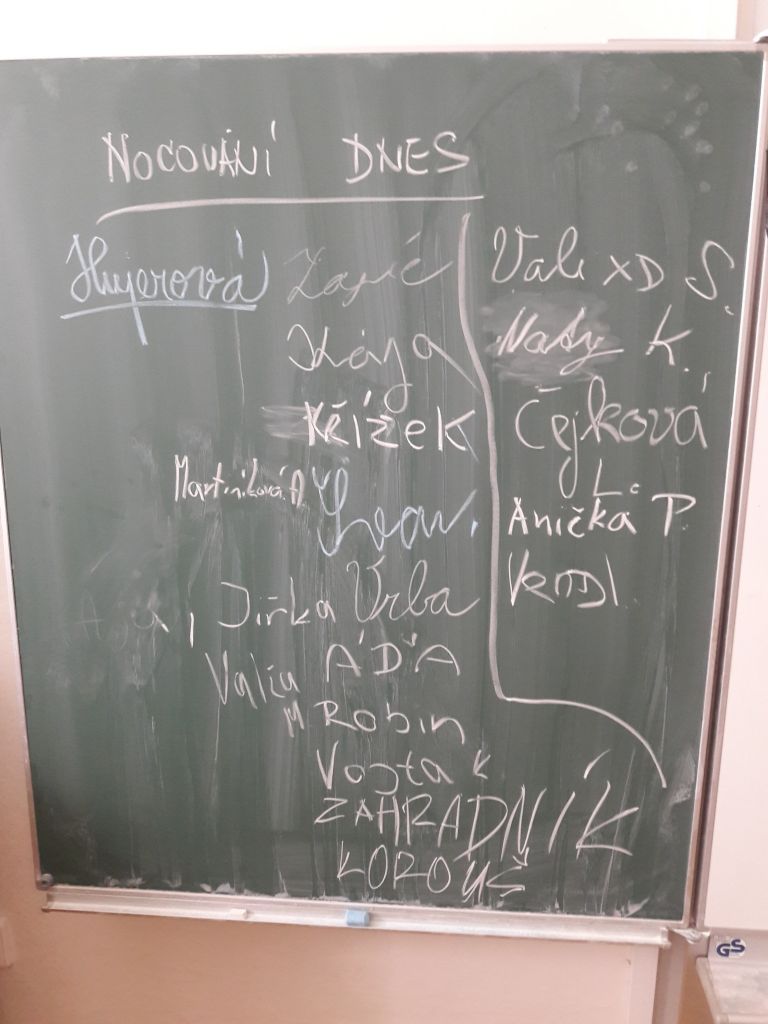 NOCOVÁNÍ DNES
Hujerová
Kája
Křížek
Martiníková A
Jirka Vrba
Valia ÁĎA
M Robin
Vojta K
ZAHRADNÍK
KOROUŠ
Vali XD S.
Naty K.
Čejková
L.
Anička P.
GS